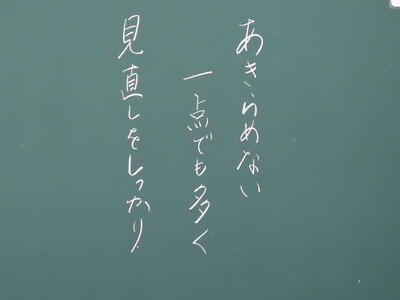 あきらめない
一点でも多く
見直しをしっかり